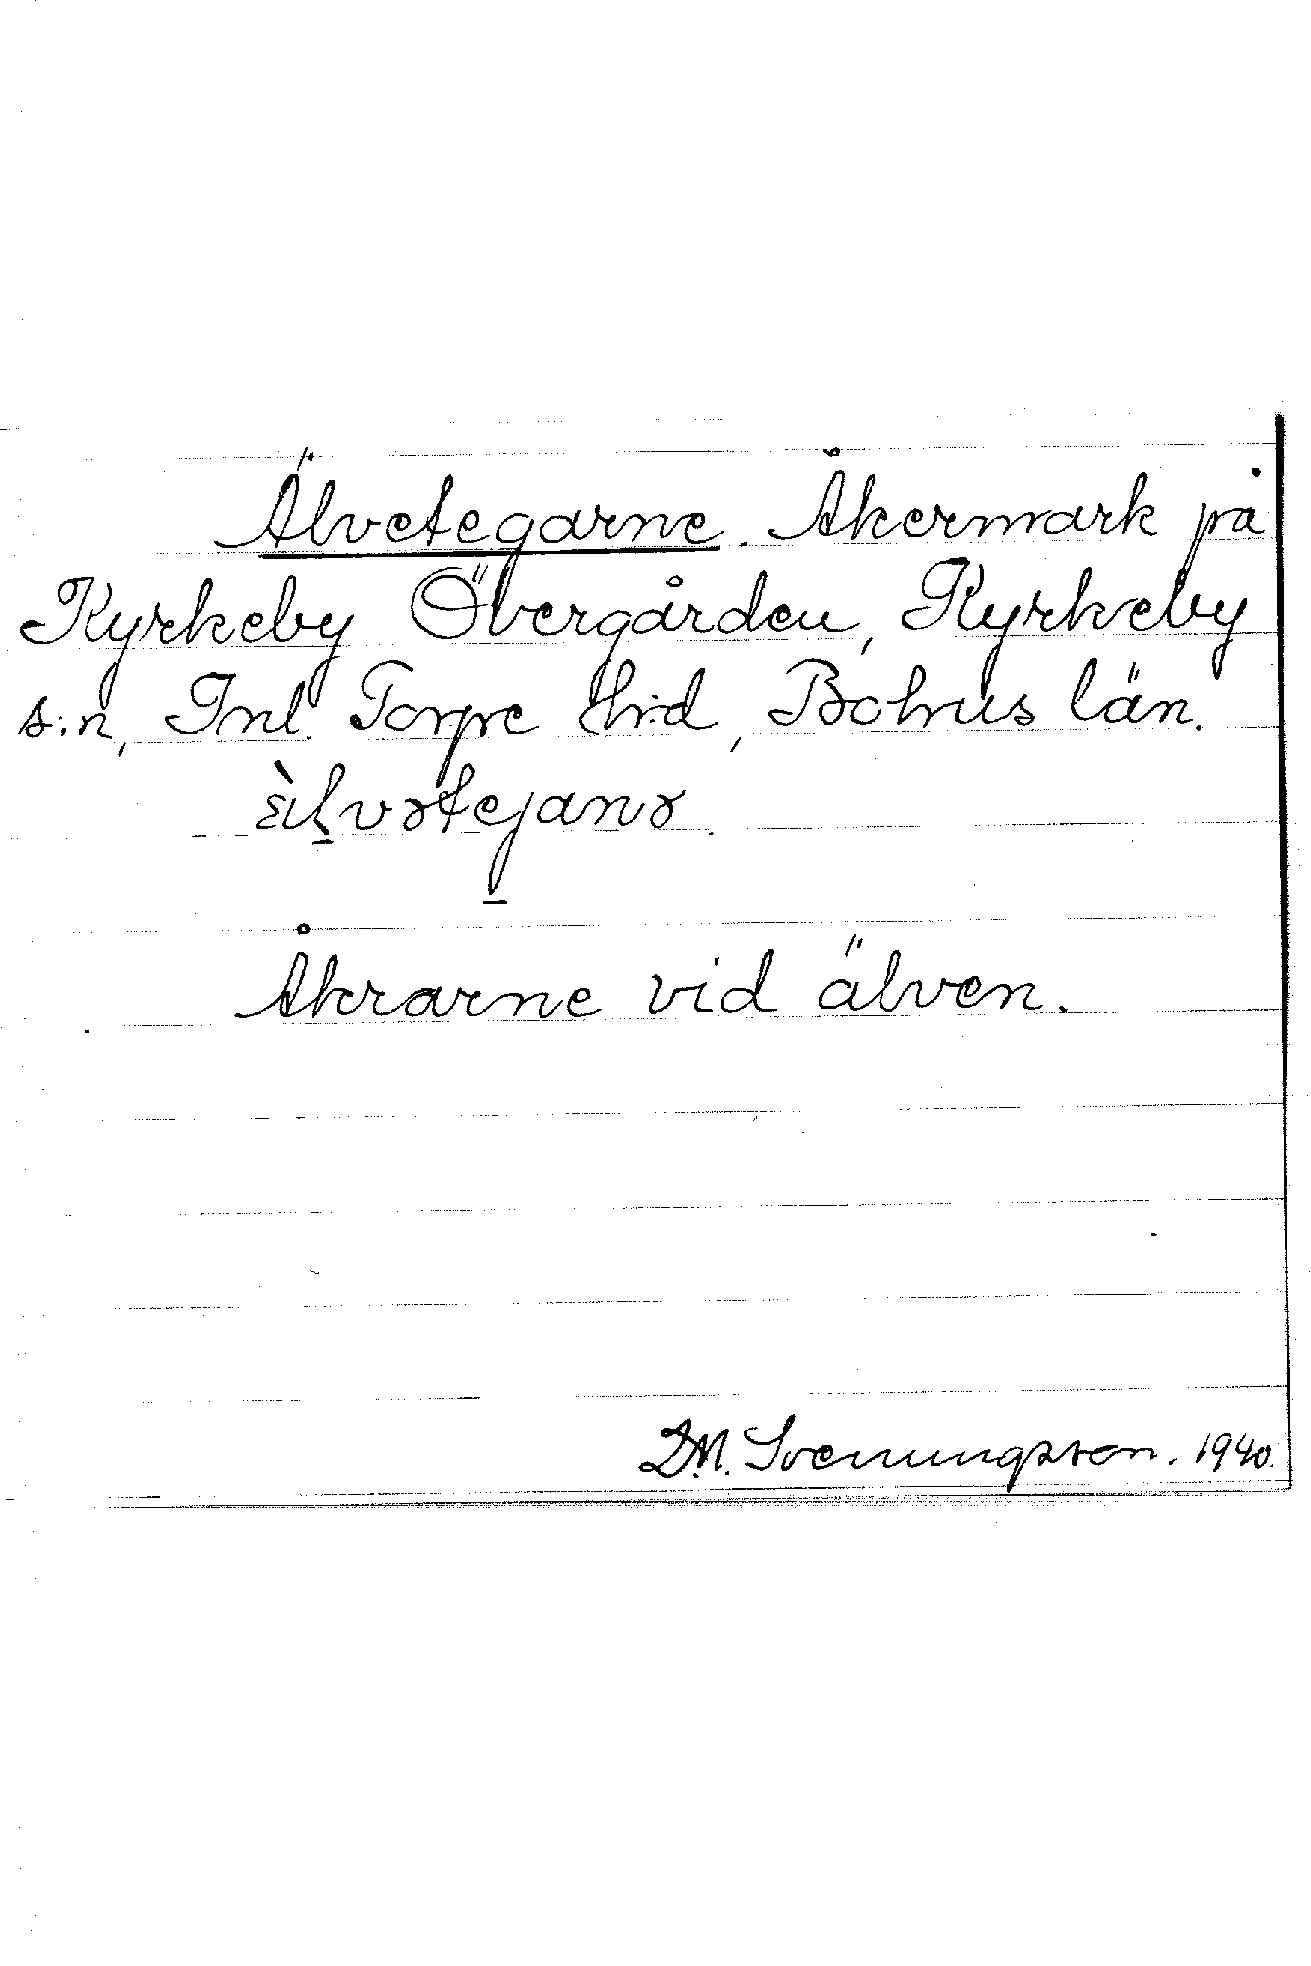 Älvetegarne. Åkermark på
Kyrkeby Övergården, Kyrkeby
s:n, Inl. Torpe hrd, Bohus län.
ὲilvətejanə.
Åkrarne vid älven.
D.M. Svenungsson. 1940.